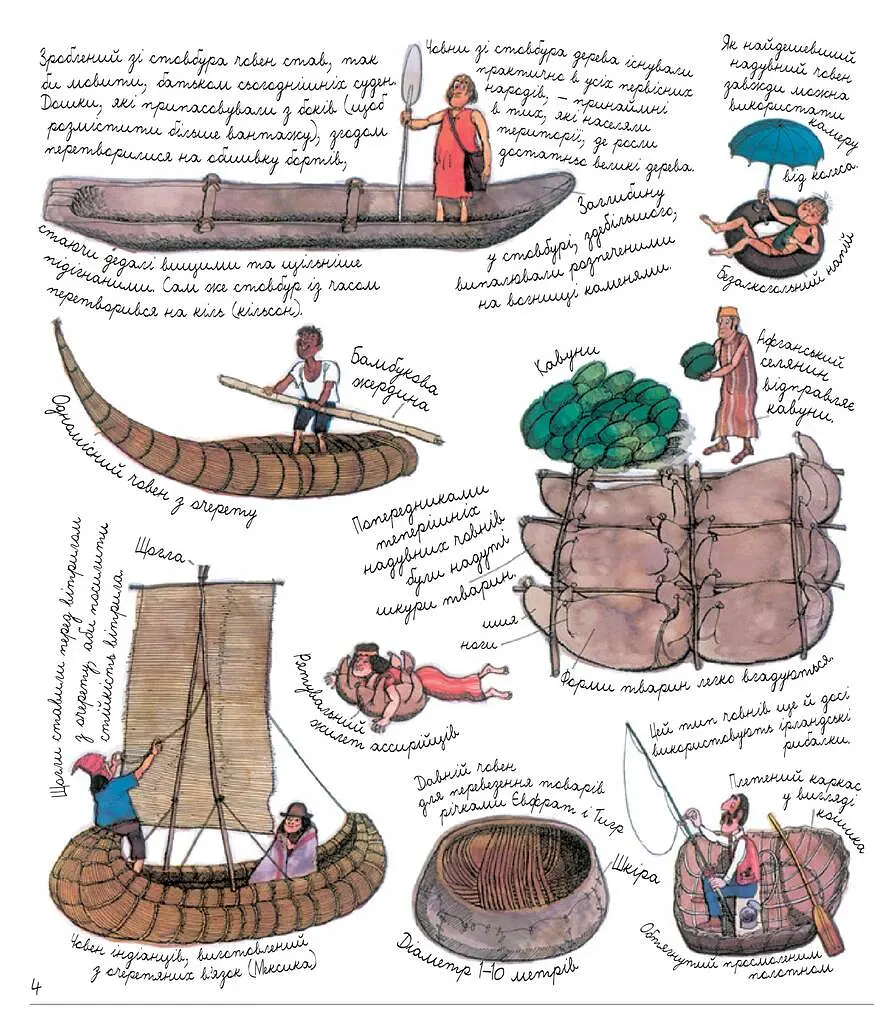 Зроблений зі стовбура човен став, так
би мовити, батьком сьогоднішніх суден.
Дошки, які припасовували з боків (щоб
розмістити більше вантажу), згодом
перетворилися на обшивку бортів,
стаючи дедалі вищими та щільніше
підігнаними. Сам же стовбур із часом
перетворився на кіль (кільсон).
Човни зі стовбура дерева існували
практично в усіх первісних
народів, – принаймні
в тих, які населяли
території, де росли
достатньо великі дерева.
Заглибину
у стовбурі, здебільшого,
випалювали розпеченими
на вогнищі каменями.
Як найдешевший
надувний човен
завжди можна
використати
камеру
від колеса.
Безалкогольний напій
Бамбукова
жердина
Одномісний човен з очерету
Кавуни
Афганський
селянин
відправляє
кавуни.
Попередниками
теперішніх
надувних човнів
були надуті
шкури тварин.
шия
ноги
Форми тварин легко вгадуються.
Щогла
Щогли ставили перед вітрилом
з очерету, аби посилити
стійкість вітрила.
Рятувальний
жилет ассирійців
Човен індіанців, виготовлений
з очеретяних в'язок (Мексика)
Давній човен
для перевезення товарів
річками Євфрат і Тигр
Шкіра
Діаметр 1–10 метрів
Цей тип човнів ще й досі
використовують ірландські
рибалки.
Плетений каркас
у вигляді
кошика
Обтягнутий просмоленим
полотном
4